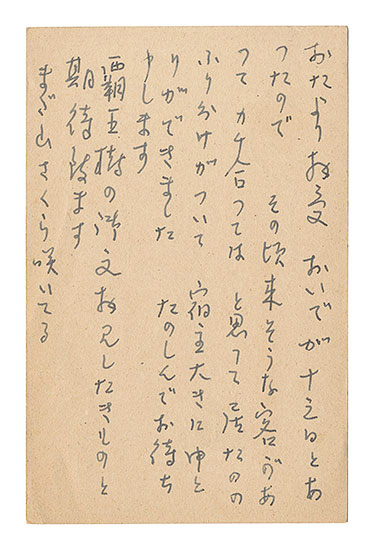 おたより拝受 おいでが十三日とあ
つたので その頃来そうな客があ
つてカケ合つてはと思つて居たのの
ふりわけがついて 宿主大きに仲と
りができました たのしんでお待ち
申します
覇王樹の御文拝見したきものと
期待致ます
まだ山さくら咲いてる